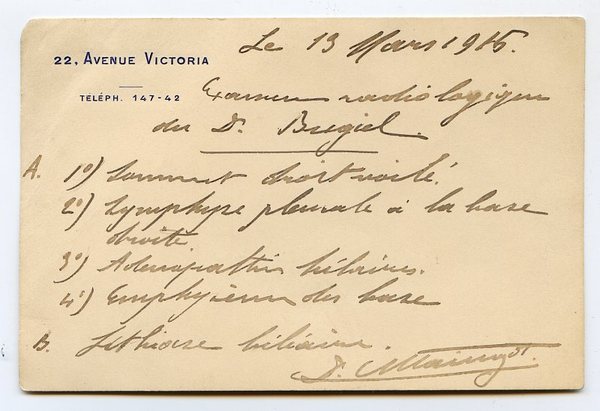 22, AVENUE VICTORIA
TÉLÉPH. 147-42
Le 13 Mars 1916.
Examen radiologique
du Dr. Bugiel.
A. 1º) Sommet droit voilé.
2º) Symphyse pleurale à la base
droite.
3º) Adénopathies hilaires.
4º) Emphysème des bases
B. Lithiase biliaire.
Dr.